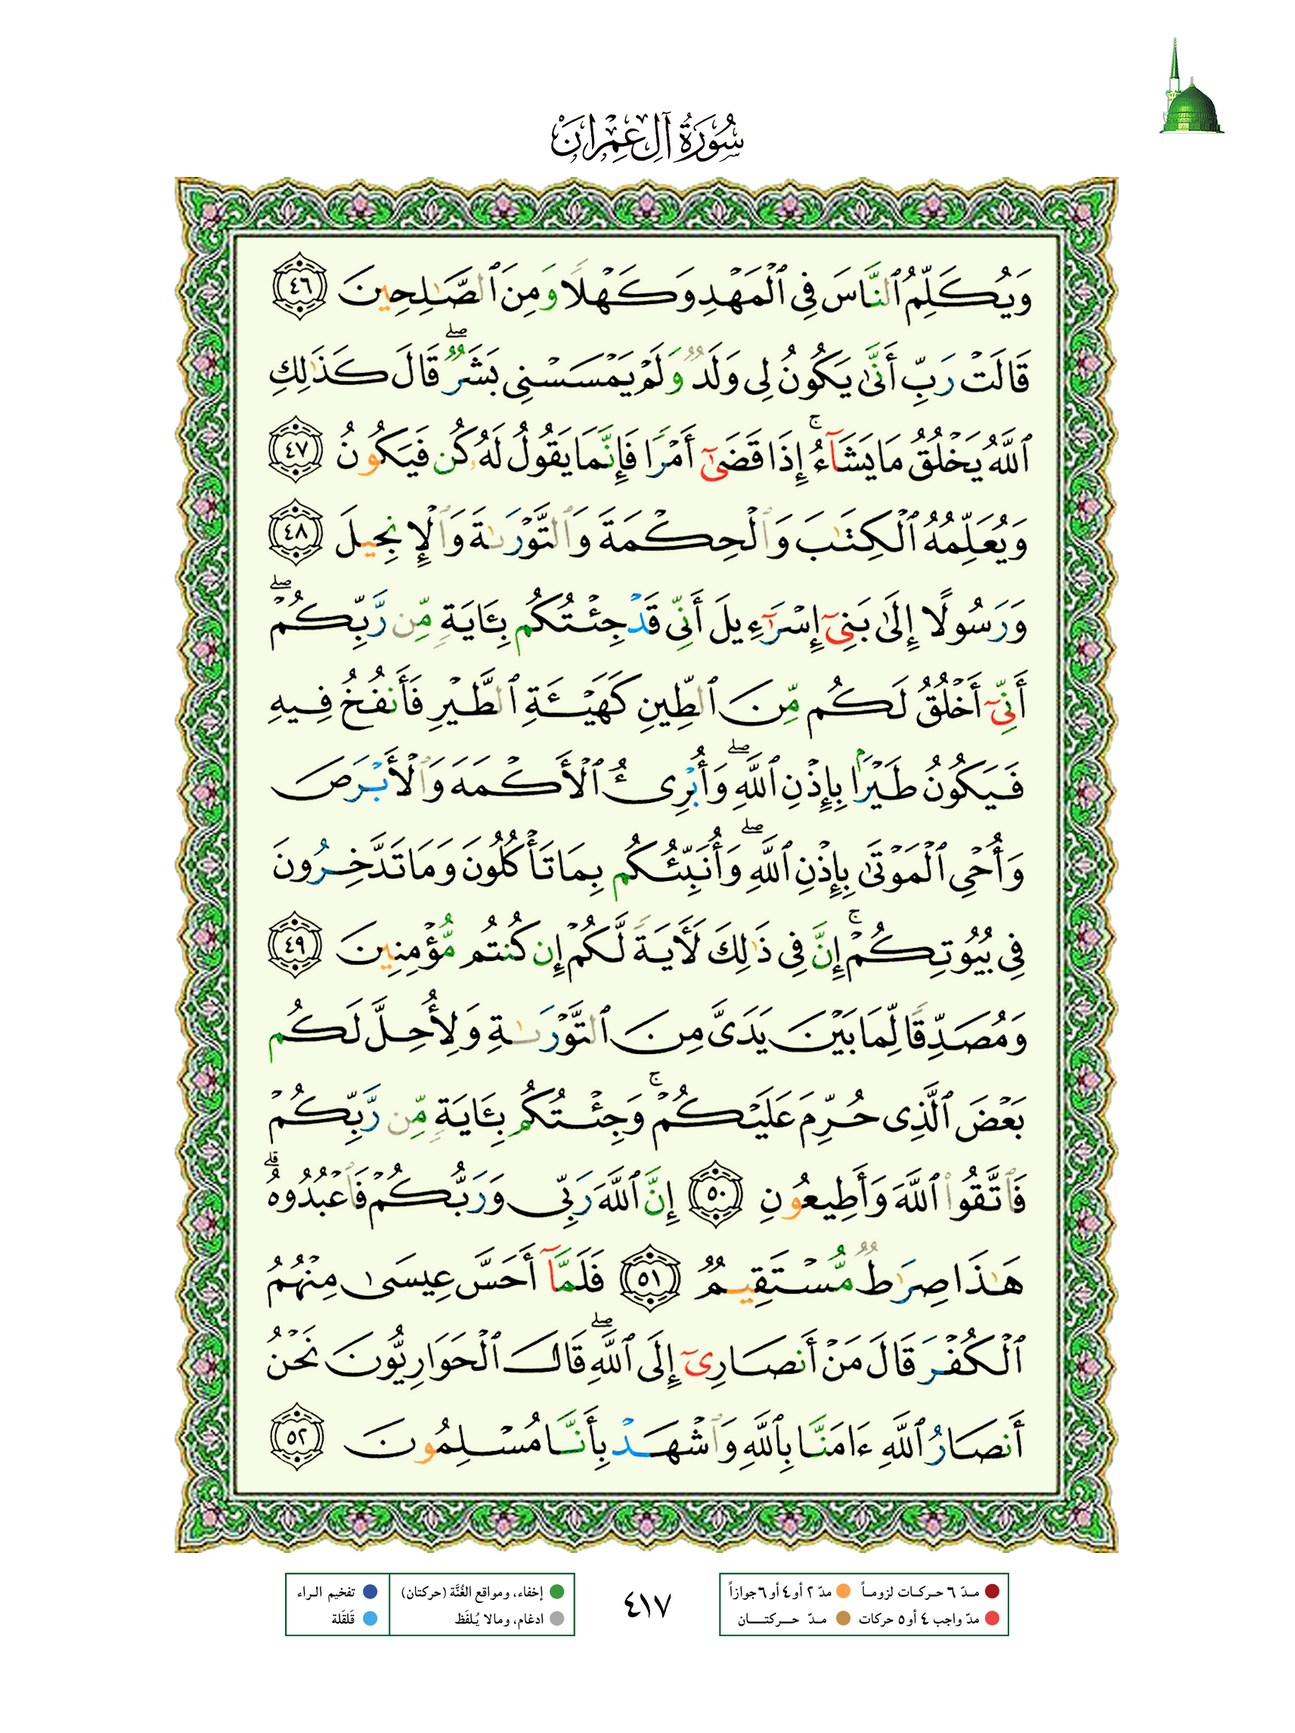 سُورَةُ آلِ عِمْرَانَ
وَيُكَلِّمُ ٱلنَّاسَ فِى ٱلْمَهْدِ وَكَهْلًا وَمِنَ ٱلصَّـٰلِحِينَ ٤٦
قَالَتْ رَبِّ أَنَّىٰ يَكُونُ لِى وَلَدٌ وَلَمْ يَمْسَسْنِى بَشَرٌ ۖ قَالَ كَذَٰلِكِ
ٱللَّهُ يَخْلُقُ مَا يَشَآءُ ۚ إِذَا قَضَىٰٓ أَمْرًا فَإِنَّمَا يَقُولُ لَهُۥ كُن فَيَكُونُ ٤٧
وَيُعَلِّمُهُ ٱلْكِتَـٰبَ وَٱلْحِكْمَةَ وَٱلتَّوْرَىٰةَ وَٱلْإِنجِيلَ ٤٨
وَرَسُولًا إِلَىٰ بَنِىٓ إِسْرَٰٓءِيلَ أَنِّى قَدْ جِئْتُكُم بِـَٔايَةٍ مِّن رَّبِّكُمْ ۖ
أَنِّىٓ أَخْلُقُ لَكُم مِّنَ ٱلطِّينِ كَهَيْـَٔةِ ٱلطَّيْرِ فَأَنفُخُ فِيهِ
فَيَكُونُ طَيْرًۢا بِإِذْنِ ٱللَّهِ ۖ وَأُبْرِئُ ٱلْأَكْمَهَ وَٱلْأَبْرَصَ
وَأُحْىِ ٱلْمَوْتَىٰ بِإِذْنِ ٱللَّهِ ۖ وَأُنَبِّئُكُم بِمَا تَأْكُلُونَ وَمَا تَدَّخِرُونَ
فِى بُيُوتِكُمْ ۚ إِنَّ فِى ذَٰلِكَ لَـَٔايَةً لَّكُمْ إِن كُنتُم مُّؤْمِنِينَ ٤٩
وَمُصَدِّقًا لِّمَا بَيْنَ يَدَىَّ مِنَ ٱلتَّوْرَىٰةِ وَلِأُحِلَّ لَكُم
بَعْضَ ٱلَّذِى حُرِّمَ عَلَيْكُمْ ۚ وَجِئْتُكُم بِـَٔايَةٍ مِّن رَّبِّكُمْ
فَٱتَّقُوا۟ ٱللَّهَ وَأَطِيعُونِ ٥٠ إِنَّ ٱللَّهَ رَبِّى وَرَبُّكُمْ فَٱعْبُدُوهُ ۗ
هَـٰذَا صِرَٰطٌ مُّسْتَقِيمٌ ٥١ فَلَمَّآ أَحَسَّ عِيسَىٰ مِنْهُمُ
ٱلْكُفْرَ قَالَ مَنْ أَنصَارِىٓ إِلَى ٱللَّهِ ۖ قَالَ ٱلْحَوَارِيُّونَ نَحْنُ
أَنصَارُ ٱللَّهِ ءَامَنَّا بِٱللَّهِ وَٱشْهَدْ بِأَنَّا مُسْلِمُونَ ٥٢
مـدّ ٦ حـركـات لزومـاً مدّ ٢ أو ٤ أو ٦ جوازاً
مدّ واجب ٤ أو ٥ حركات مـدّ حـركتـان
٤١٧
إخفاء، ومواقع الغُنَّة (حركتان) تفخيم الراء
ادغام، ومالا يُلفَظ قلقَلة